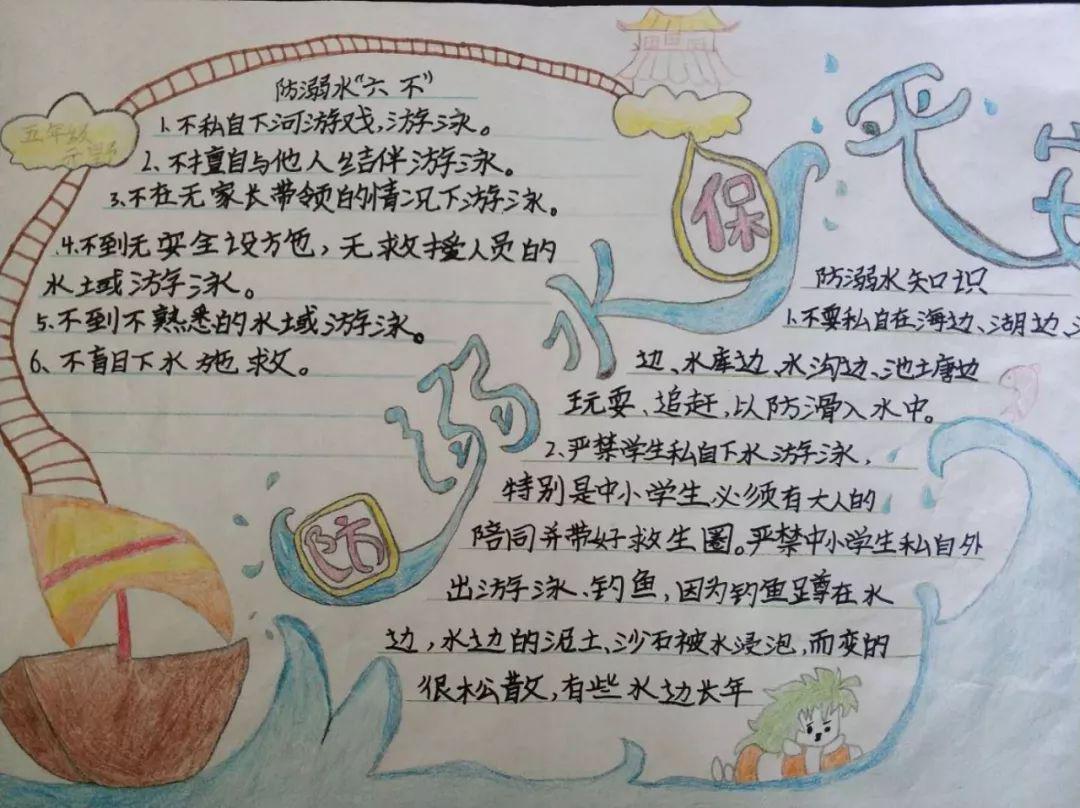 五年级
防溺水“六不”
1.不私自下河游戏,游泳。
2.不擅自与他人结伴游泳。
3.不在无家长带领的情况下游泳。
4.不到无安全设施,无救援人员的
水域游泳。
5.不到不熟悉的水域游泳。
6、不盲目下水施救。
防溺水
保平安
防溺水知识
1.不要私自在海边、湖边、
边、水库边、水沟边、池塘边
玩耍、追赶,以防滑入水中。
2.严禁学生私自下水游泳,
特别是中小学生必须有大人的
陪同并带好救生圈。严禁中小学生私自外
出游泳、钓鱼,因为钓鱼蹲在水
边,水边的泥土、沙石被水浸泡,而变的
很松散,有些水边长年